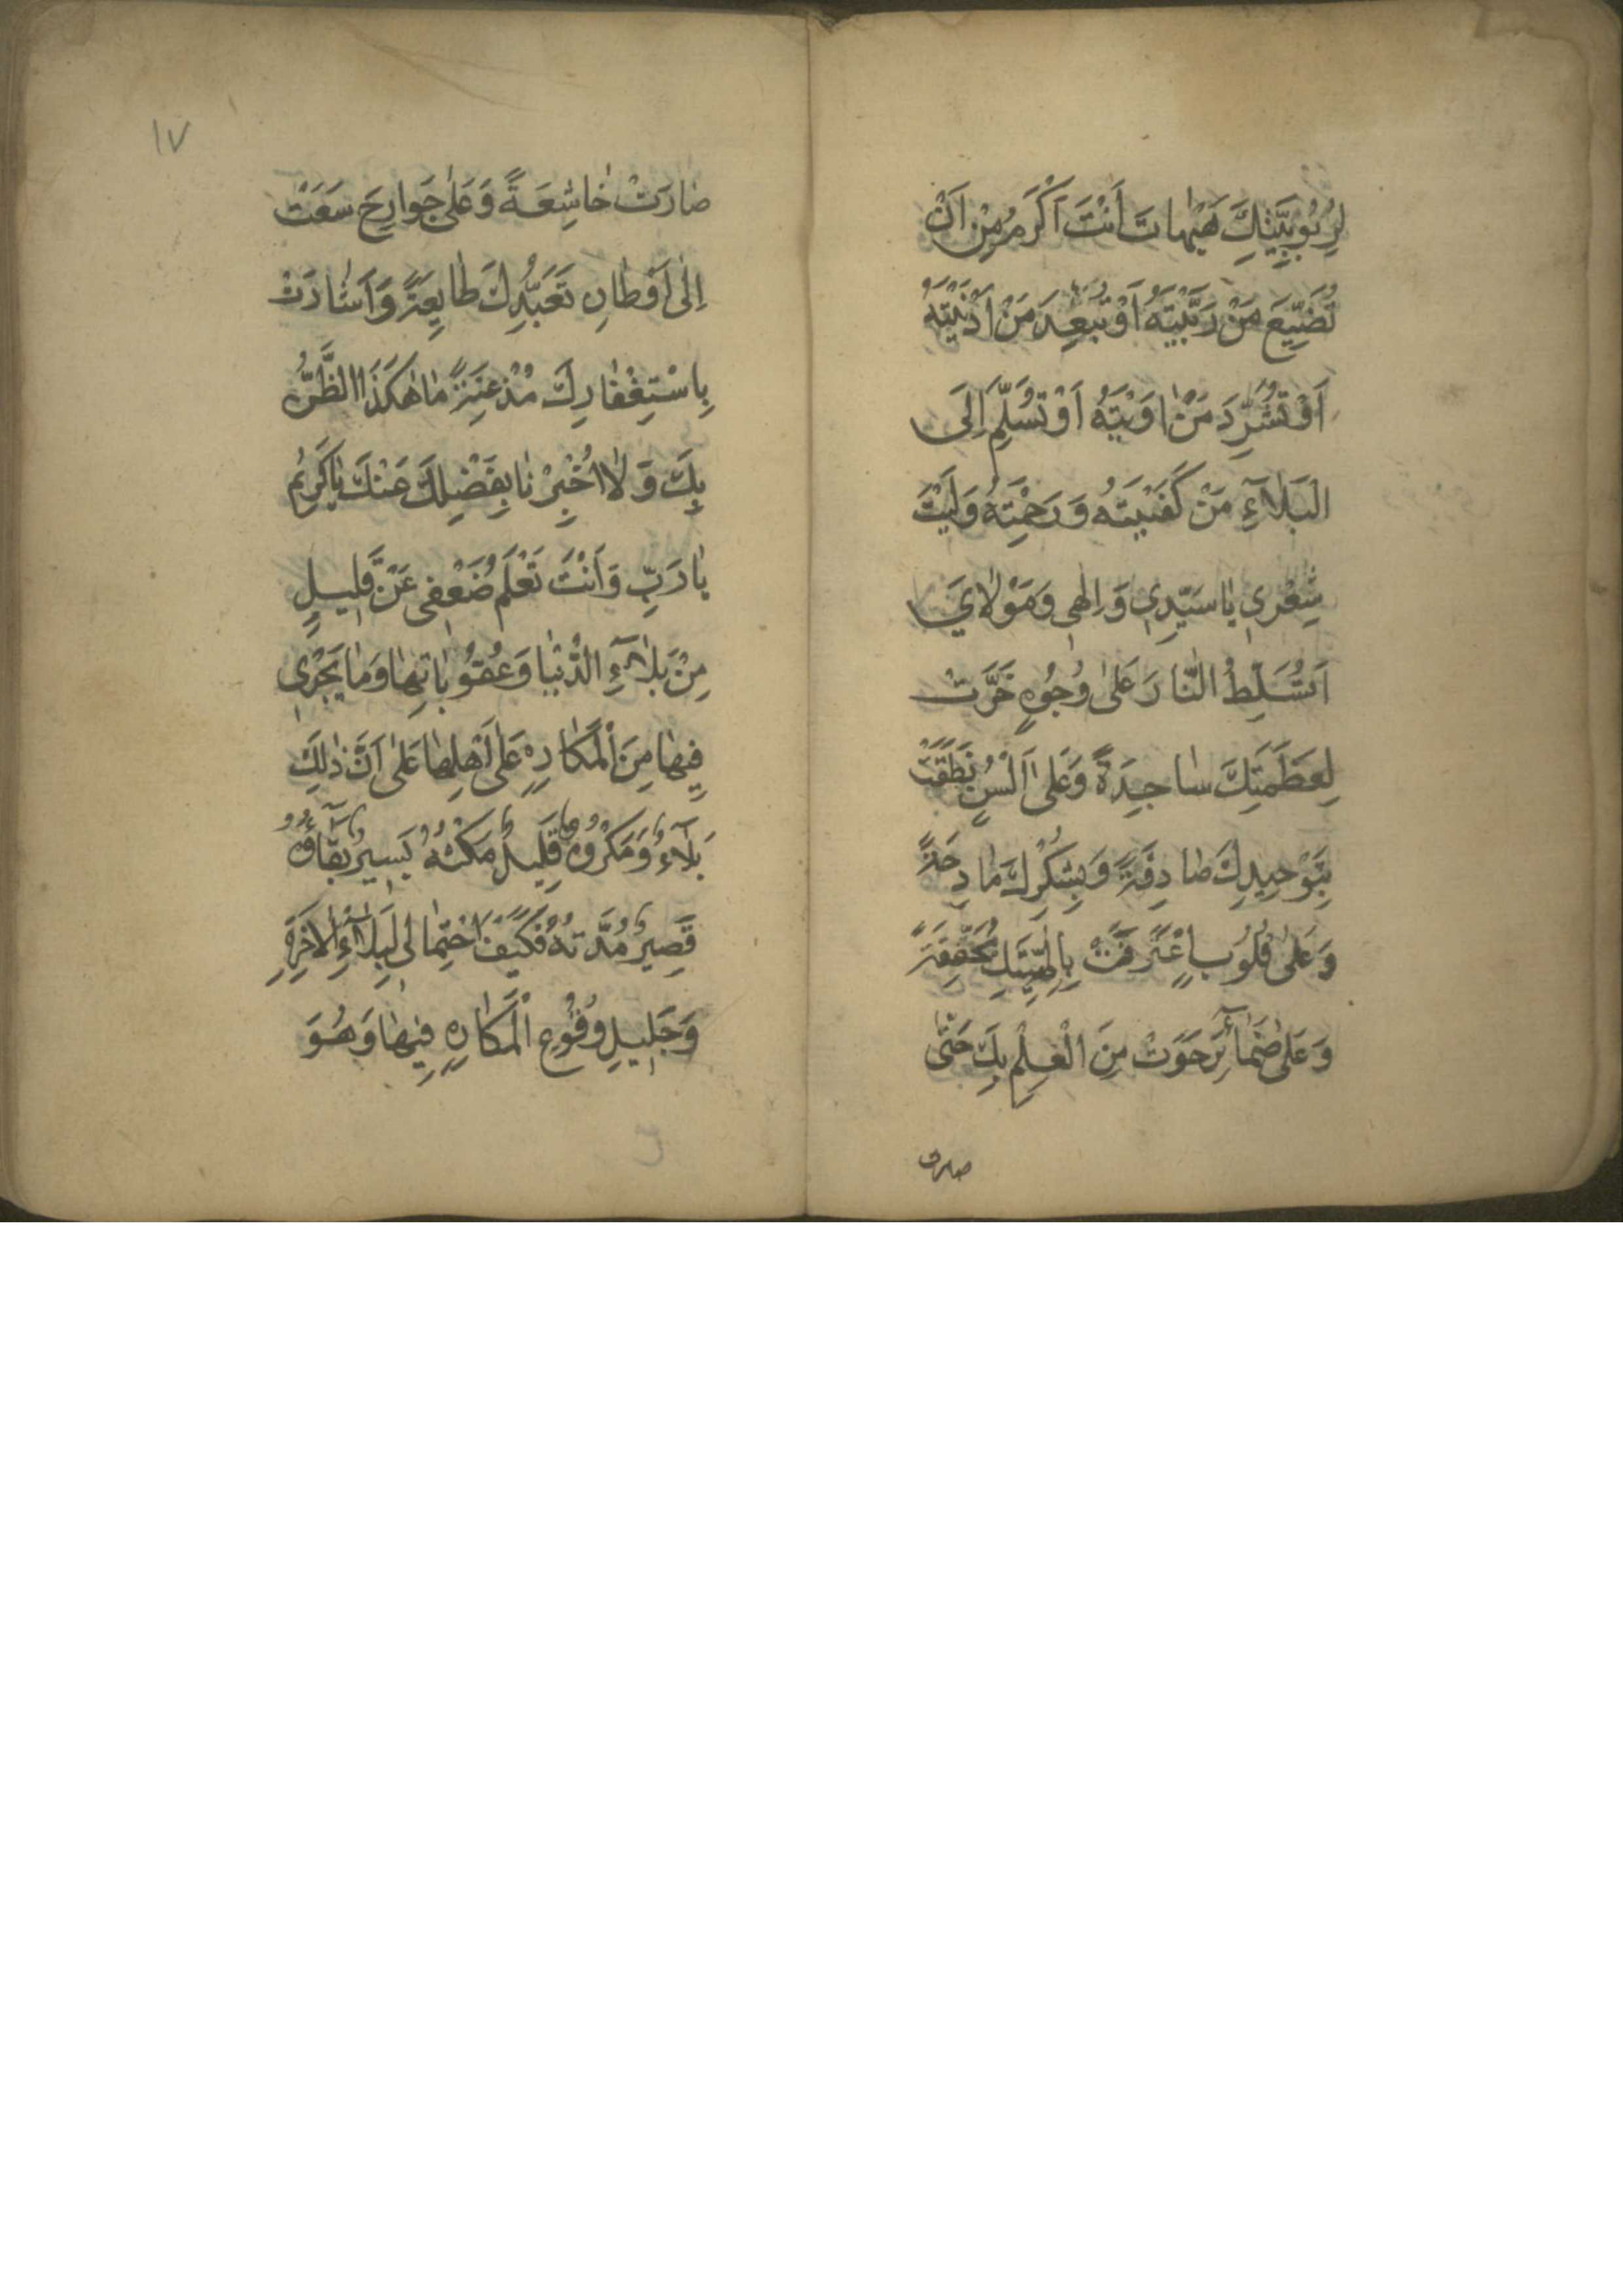 لِرُبُوبِيَّتِكَ هَيْهَاتَ أَنْتَ أَكْرَمُ مِنْ أَنْ
تُضَيِّعَ مَنْ رَبَّيْتَهُ أَوْ تُبَعِّدَ مَنْ أَدْنَيْتَهُ
أَوْ تُشَرِّدَ مَنْ اٰوَيْتَهُ أَوْ تُسَلِّمَ إِلَى
الْبَلَآءِ مَنْ كَفَيْتَهُ وَرَحِمْتَهُ وَلَيْتَ
شِعْرِي يَا سَيِّدِي وَإِلٰهِي وَمَوْلَايَ
أَتُسَلِّطُ النَّارَ عَلَىٰ وُجُوهٍ خَرَّتْ
لِعَظَمَتِكَ سَاجِدَةً وَعَلَىٰ أَلْسُنٍ نَطَقَتْ
بِتَوْحِيدِكَ صَادِقَةً وَبِشُكْرِكَ مَادِحَةً
وَعَلَىٰ قُلُوبٍ اعْتَرَفَتْ بِإِلٰهِيَّتِكَ مُحَقِّقَةً
وَعَلَىٰ ضَمَآئِرَ حَوَتْ مِنَ الْعِلْمِ بِكَ حَتَّىٰ
صارت
١٧
صَارَتْ خَاشِعَةً وَعَلَىٰ جَوَارِحَ سَعَتْ
إِلَىٰ أَوْطَانِ تَعَبُّدِكَ طَايِعَةً وَأَشَارَتْ
بِاسْتِغْفَارِكَ مُذْعِنَةً مَا هٰكَذَا الظَّنُّ
بِكَ وَلَا أُخْبِرْنَا بِفَضْلِكَ عَنْكَ يَا كَرِيمُ
يَا رَبِّ وَأَنْتَ تَعْلَمُ ضَعْفِي عَنْ قَلِيلٍ
مِنْ بَلَآءِ الدُّنْيَا وَعُقُوبَاتِهَا وَمَا يَجْرِي
فِيهَا مِنَ الْمَكَارِهِ عَلَىٰ أَهْلِهَا عَلَىٰ أَنَّ ذٰلِكَ
بَلَآءٌ وَمَكْرُوهٌ قَلِيلٌ مَكْثُهُ يَسِيرٌ بَقَآؤُهُ
قَصِيرٌ مُدَّتُهُ فَكَيْفَ احْتِمَالِي لِبَلَآءِ الْاٰخِرَةِ
وَجَلِيلِ وُقُوعِ الْمَكَارِهِ فِيهَا وَهُوَ